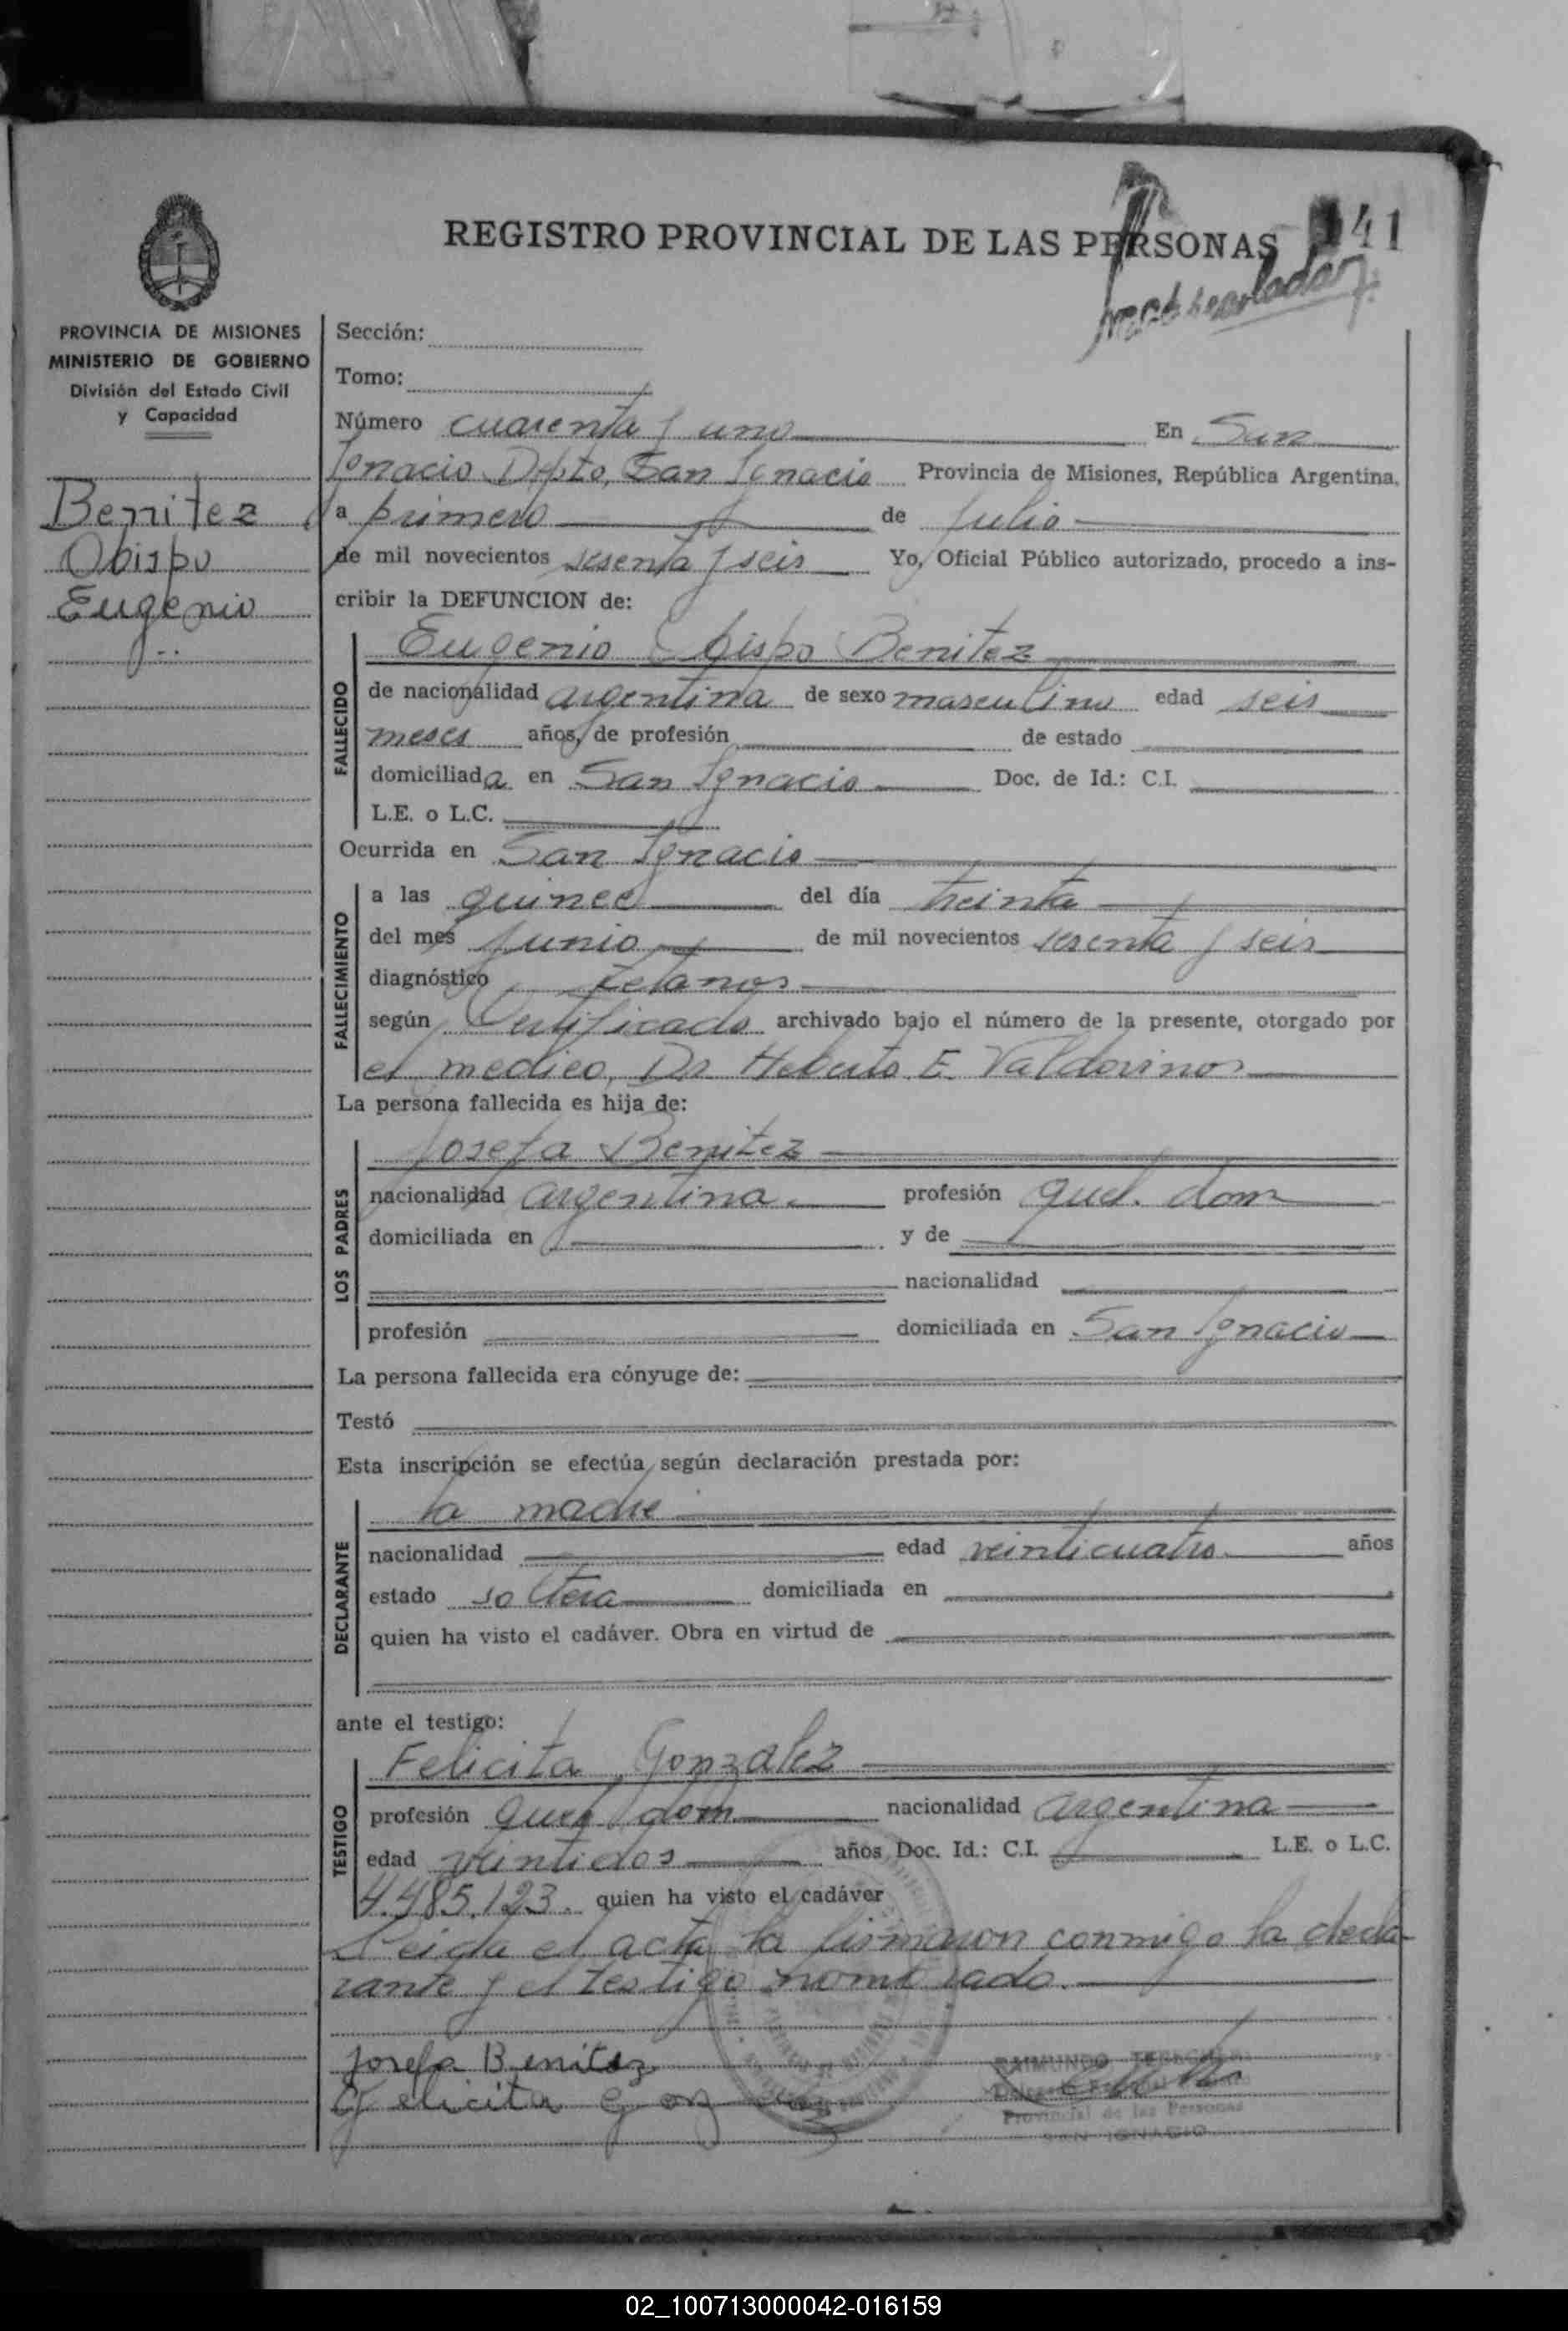 REGISTRO PROVINCIAL DE LAS PERSONAS
41
PROVINCIA DE MISIONES
MINISTERIO DE GOBIERNO
División del Estado Civil
y Capacidad
Benitez
Obispo
Eugenio
Sección:
Tomo:
Número cuarenta y uno En San
Ignacio Dpto. San Ignacio Provincia de Misiones, República Argentina,
a primero de Julio
de mil novecientos sesenta y seis Yo, Oficial Público autorizado, procedo a ins-
cribir la DEFUNCION de:
FALLECIDO
Eugenio Obispo Benitez
de nacionalidad argentina de sexo masculino edad seis
meses años, de profesión de estado
domiciliada en San Ignacio Doc. de Id.: C.I.
L.E. o L.C.
Ocurrida en San Ignacio
FALLECIMIENTO
a las quince del día treinta
del mes Junio de mil novecientos sesenta y seis
diagnóstico tetanos
según Certificado archivado bajo el número de la presente, otorgado por
el medico, Dr. Heberto E. Valdovinos
La persona fallecida es hija de:
LOS PADRES
Josefa Benitez
nacionalidad argentina profesión queh. dom
domiciliada en y de
nacionalidad
profesión domiciliada en San Ignacio
La persona fallecida era cónyuge de:
Testó
Esta inscripción se efectúa según declaración prestada por:
DECLARANTE
la madre
nacionalidad edad veinticuatro años
estado soltera domiciliada en
quien ha visto el cadáver. Obra en virtud de
ante el testigo:
TESTIGO
Felicita Gonzalez
profesión queh. dom. nacionalidad argentina
edad veintidos años Doc. Id.: C.I. L.E. o L.C.
4.485.123. quien ha visto el cadáver
Leida el acta la firmaron conmigo la decla-
rante y el testigo nombrado.
Josefa Benitez
Felicita Gonzalez
RAIMUNDO
Provincial de las Personas
SAN IGNACIO
02_100713000042-016159